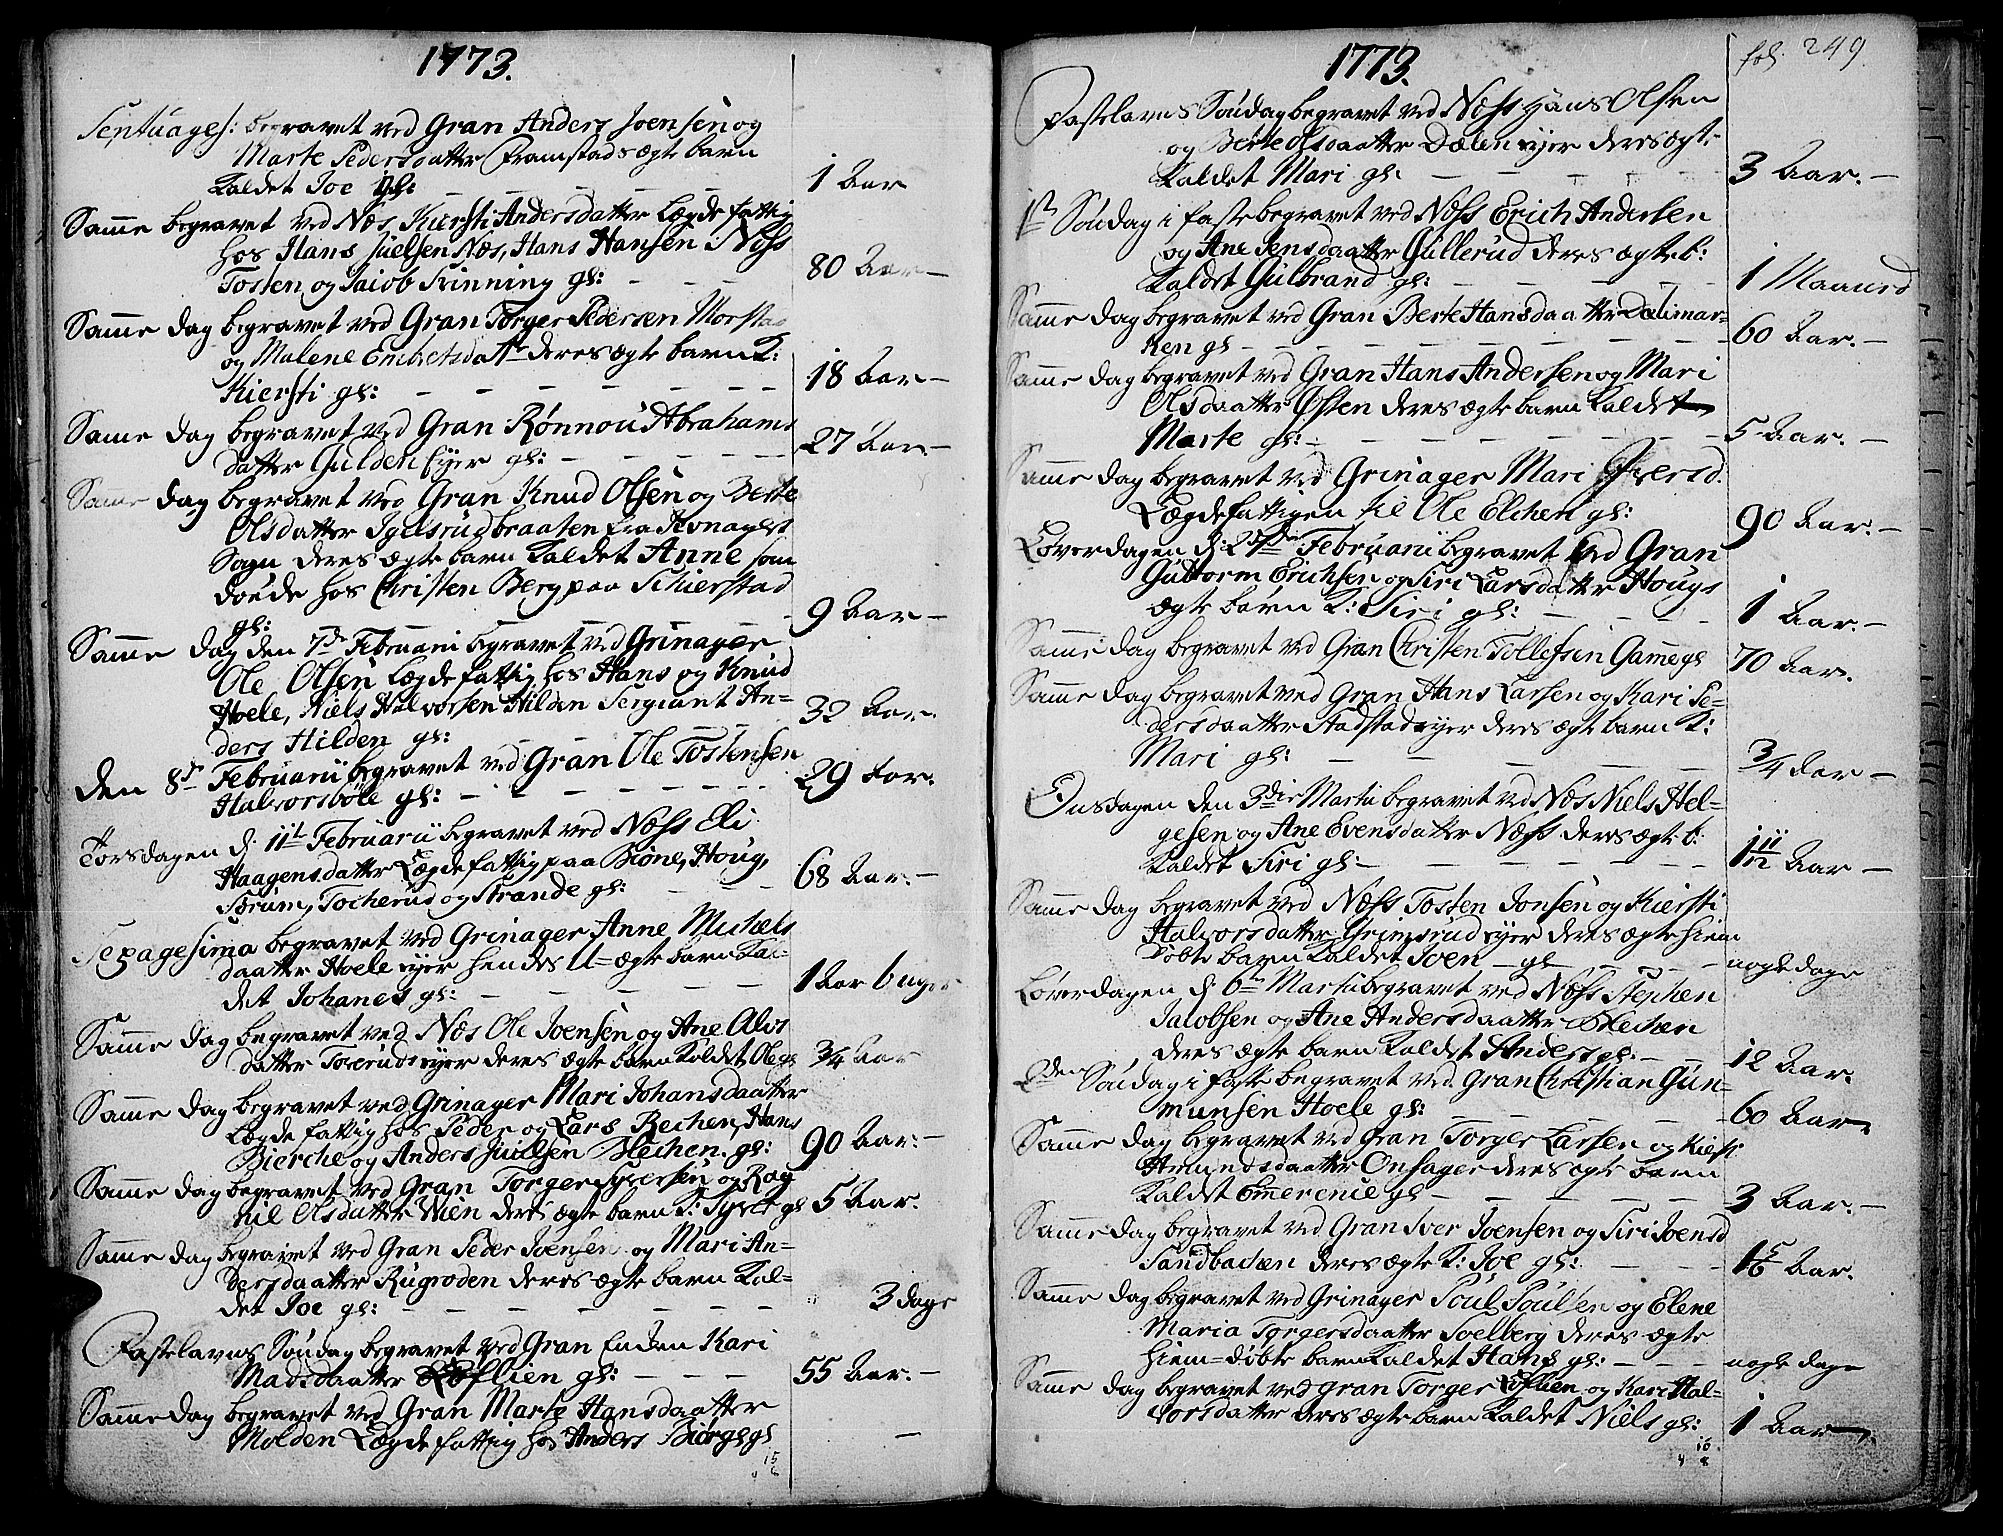 1773.
Septuages: begravet ved Gran Anders Joensen og
Marte Pedersdaatter Framstads ægte barn
kaldet Joe gl: 1 Aar
Samme begravet ved Næs Kiersti Andersdatter Lægdefattig
hos Hans Juelsen Næs, Hans Hansen Næss
Tosten og Jacob Svinning gl: 80 Aar
Samme dag begravet ved Gran Torger Pedersen Morstad
og Malene deres ægte barn K:
Kiersti gl: 18 Aar
Same dag begravet ved Gran Rønnou Abrahams
datter Gulden Eyer gl: 27 Aar
Same dag begravet ved Gran Knud Olsen og Berte
Olsdatter Igelsrudbraaten fra Jevnagers
Sogn deres ægte barn kaldet Anne som
døde hos Christen Berg paa Schierstad
gl: 9 Aar
Samme dag den 7de Februarii begravet ved Grinager
Ole Olsen Lægdefattig hos Hans og Knud
Hoele, Niels Halvorsen Hilden Sergiant An=
ders Hilden gl: 32 Aar.
den 8de Februarii begravet ved Gran Ole Tostensen
Halvorsbøle gl: 29 Aar.
Torsdagen d: 11te Februarii begravet ved Næss Eli
Haagensdatter Lægdefattig paa Bione, Houg,
Sørum, Tocherud og Strande gl: 68 Aar.
Sexagesima begravet ved Grinager Anne Michels
daatter Hoele eyer hendes U=ægte barn kal=
det Johanes gl: 1 Aar 6 uger
Samme dag begravet ved Næs Ole Joensen og Ane Alvs
datter Toverudseyer deres ægte barn kaldet Ole gl 3/4 Aar
Samme dag begravet ved Grinager Mari Johansdaatter
Lægdefattig hos Peder og Lars Bechen, Hans
Bierche og Anders Juelsen Blechen gl: 90 Aar:
Samme dag begravet ved Gran Torger Syversen og Rag
nil Olsdatter Wien deres ægte barn K: Syvert gl 5 Aar.
Samme dag begravet ved Gran Peder Joensen og Mari An=
dersdaatter Rugroden deres ægte barn kal=
det Joe gl: 3 dage
Fastelavns Søndag begravet ved Gran Enchen Kari
Madsdaatter Løflien gl: 55 Aar.
Samme dag begravet ved Gran Marte Hansdaatter
Molden Lægdefattig hos Anders Biørge gl
15
6
1773.
fol. 249.
Fastelavns Søndag begravet ved Næss Hans Olsen
og Berte Olsdaatter Dælen eyer deres ægte
kaldet Mari gl: 3 Aar.
1ste Søndag i faste begravet ved Næss Erich Andersen
og Ane Jensdaatter Gullerud deres ægte b:
kaldet Gulbrand gl: 1 Maaned
Samme dag begravet ved Gran Berte Hansdaatter Dælimar=
ken gl 60 Aar.
Samme dag begravet ved Gran Hans Andersen og Mari
Olsdaatter Østen deres ægte barn kaldet
Marte gl: 5 Aar.
Samme dag begravet ved Grinager Mari Iversd.
Lægdefattigen til Ole Elchen gl: 90 Aar.
Løverdagen d: 27de Februarii begravet ved Gran
Guttorm Erichsen og Siri Larsdatter Hougs
ægte barn K: Siri gl: 1 Aar.
Samme dag begravet ved Gran Christen Tollefsen Game gl 70 Aar.
Samme dag begravet ved Gran Hans Larsen og Kari Pe=
dersdaatter Stadstad eyer deres ægte barn K:
Mari gl: 3/4 Aar
Onsdagen den 3die Martii begravet ved Næs Niels Hel=
gesen og Ane Evensdatter Næss deres ægte b:
kaldet Siri gl: 1 11/12 Aar
Samme dag begravet ved Næss Tosten Jonsen og Kiersti
Halvorsdatter Grimsrud eyer deres ægte hiem
døbte barn kaldet Joen gl nogle dage
Løverdagen d: 6te Martii begravet ved Næss Stephen
Jacobsen og Ane Andersdaatter Blechen
deres ægte barn kaldet Anders gl: 12 Aar.
2den Søndag i faste begravet ved Gran Christian Gun=
munsen Hoele gl: 60 Aar.
Samme dag begravet ved Gran Torger Larsen og Kirsti
Amundsdaatter Onsager deres ægte barn
kaldet Emerencie gl 3 Aar.
Samme dag begravet ved Gran Iver Joensen og Siri Joensd
Sandbachen deres ægte K: Joe gl: 1 5/6 Aar.
Samme dag begravet ved Grinager Poul Poulsen og Elene
Maria Torgersdaatter Soelberg deres ægte
hiem=døbte barn kaldet Hans gl: nogle dage
Samme dag begravet ved Gran Torger Løflien og Kari Hal=
vorsdatter deres ægte barn kaldet Niels gl: 1 Aar
16
8